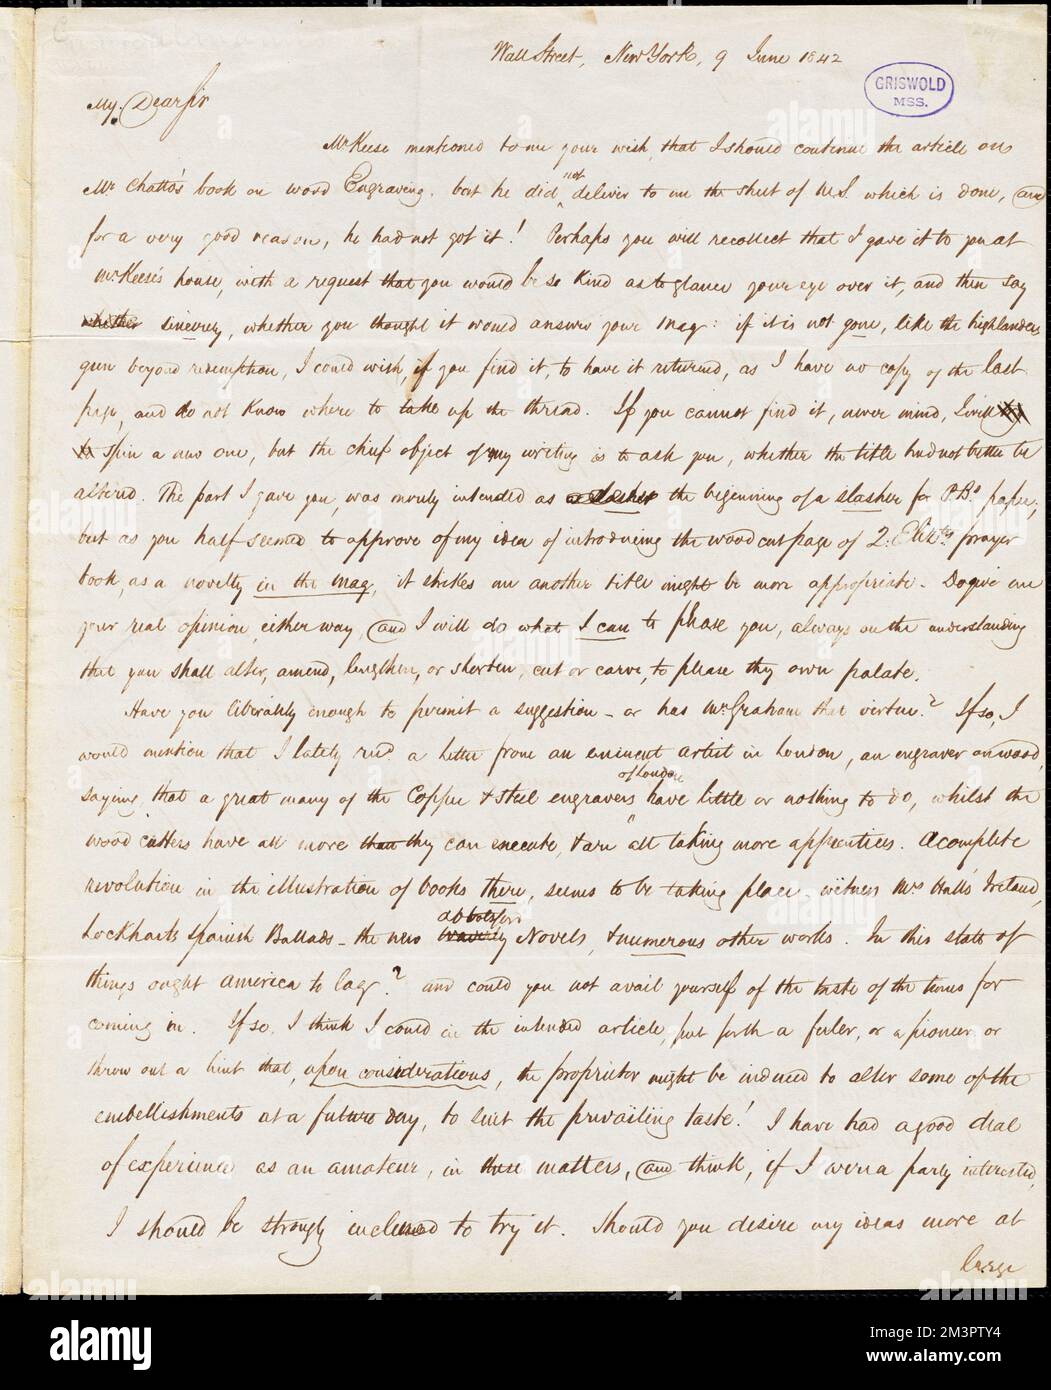 Wall Street, New York, 9 June 1842
GRISWOLD
MSS.
My Dear Sir
Mr Keese mentioned to me your wish, that I should continue the article on
Mr Chatto's book on wood Engraving. but he did not deliver to me the sheet of M.S. which is done, and
for a very good reason, he had not got it! Perhaps you will recollect that I gave it to you at
Mr Keese's house, with a request that you would be so kind as to glance your eye over it, and then say
whether sincerely, whether you thought it would answer your Mag: if it is not gone, like the highlanders
gun beyond redemption, I could wish, if you find it, to have it returned, as I have no copy of the last
page, and do not know where to take up the thread. If you cannot find it, never mind, I will
to spin a new one, but the chief object of my writing is to ask you, whether the title had not better be
altered. The part I gave you, was merely intended as a slasher the beginning of a slasher for P.B's paper,
but as you half seemed to approve of my idea of introducing the wood cut page of 2. Eliz:ths prayer
book, as a novelty in the Mag, it strikes me another title might be more appropriate - Do give me
your real opinion, either way, and I will do what I can to please you, always on the understanding
that you shall alter, amend, lengthen, or shorten, cut or carve, to please thy own palate.
Have you liberality enough to permit a suggestion - or has Mr Graham that virtue? If so, I
would mention that I lately recd. a letter from an eminent artist in London, an engraver on wood,
saying, that a great many of the Copper & Steel engravers of London have little or nothing to do, whilst the
wood cutters have all more than they can execute, & are all taking more apprentices. A complete
revolution in the illustration of books there, seems to be taking place - witness Mrs Hall's Ireland,
Lockhart's Spanish Ballads - the new Waverly Abbotsford Novels, & numerous other works. In this state of
things ought America to lag? and could you not avail yourself of the taste of the times for
coming in. If so, I think I could in the intended article, put forth a feeler, or a pioneer, or
throw out a hint that, upon considerations, the proprietor might be induced to alter some of the
embellishments at a future day, to suit the prevailing taste! I have had a good deal
of experience as an amateur, in these matters, and think, if I were a party interested,
I should be strongly inclined to try it. Should you desire my ideas more at
large
alamy
Image ID: 2M3PTY4
www.alamy.com